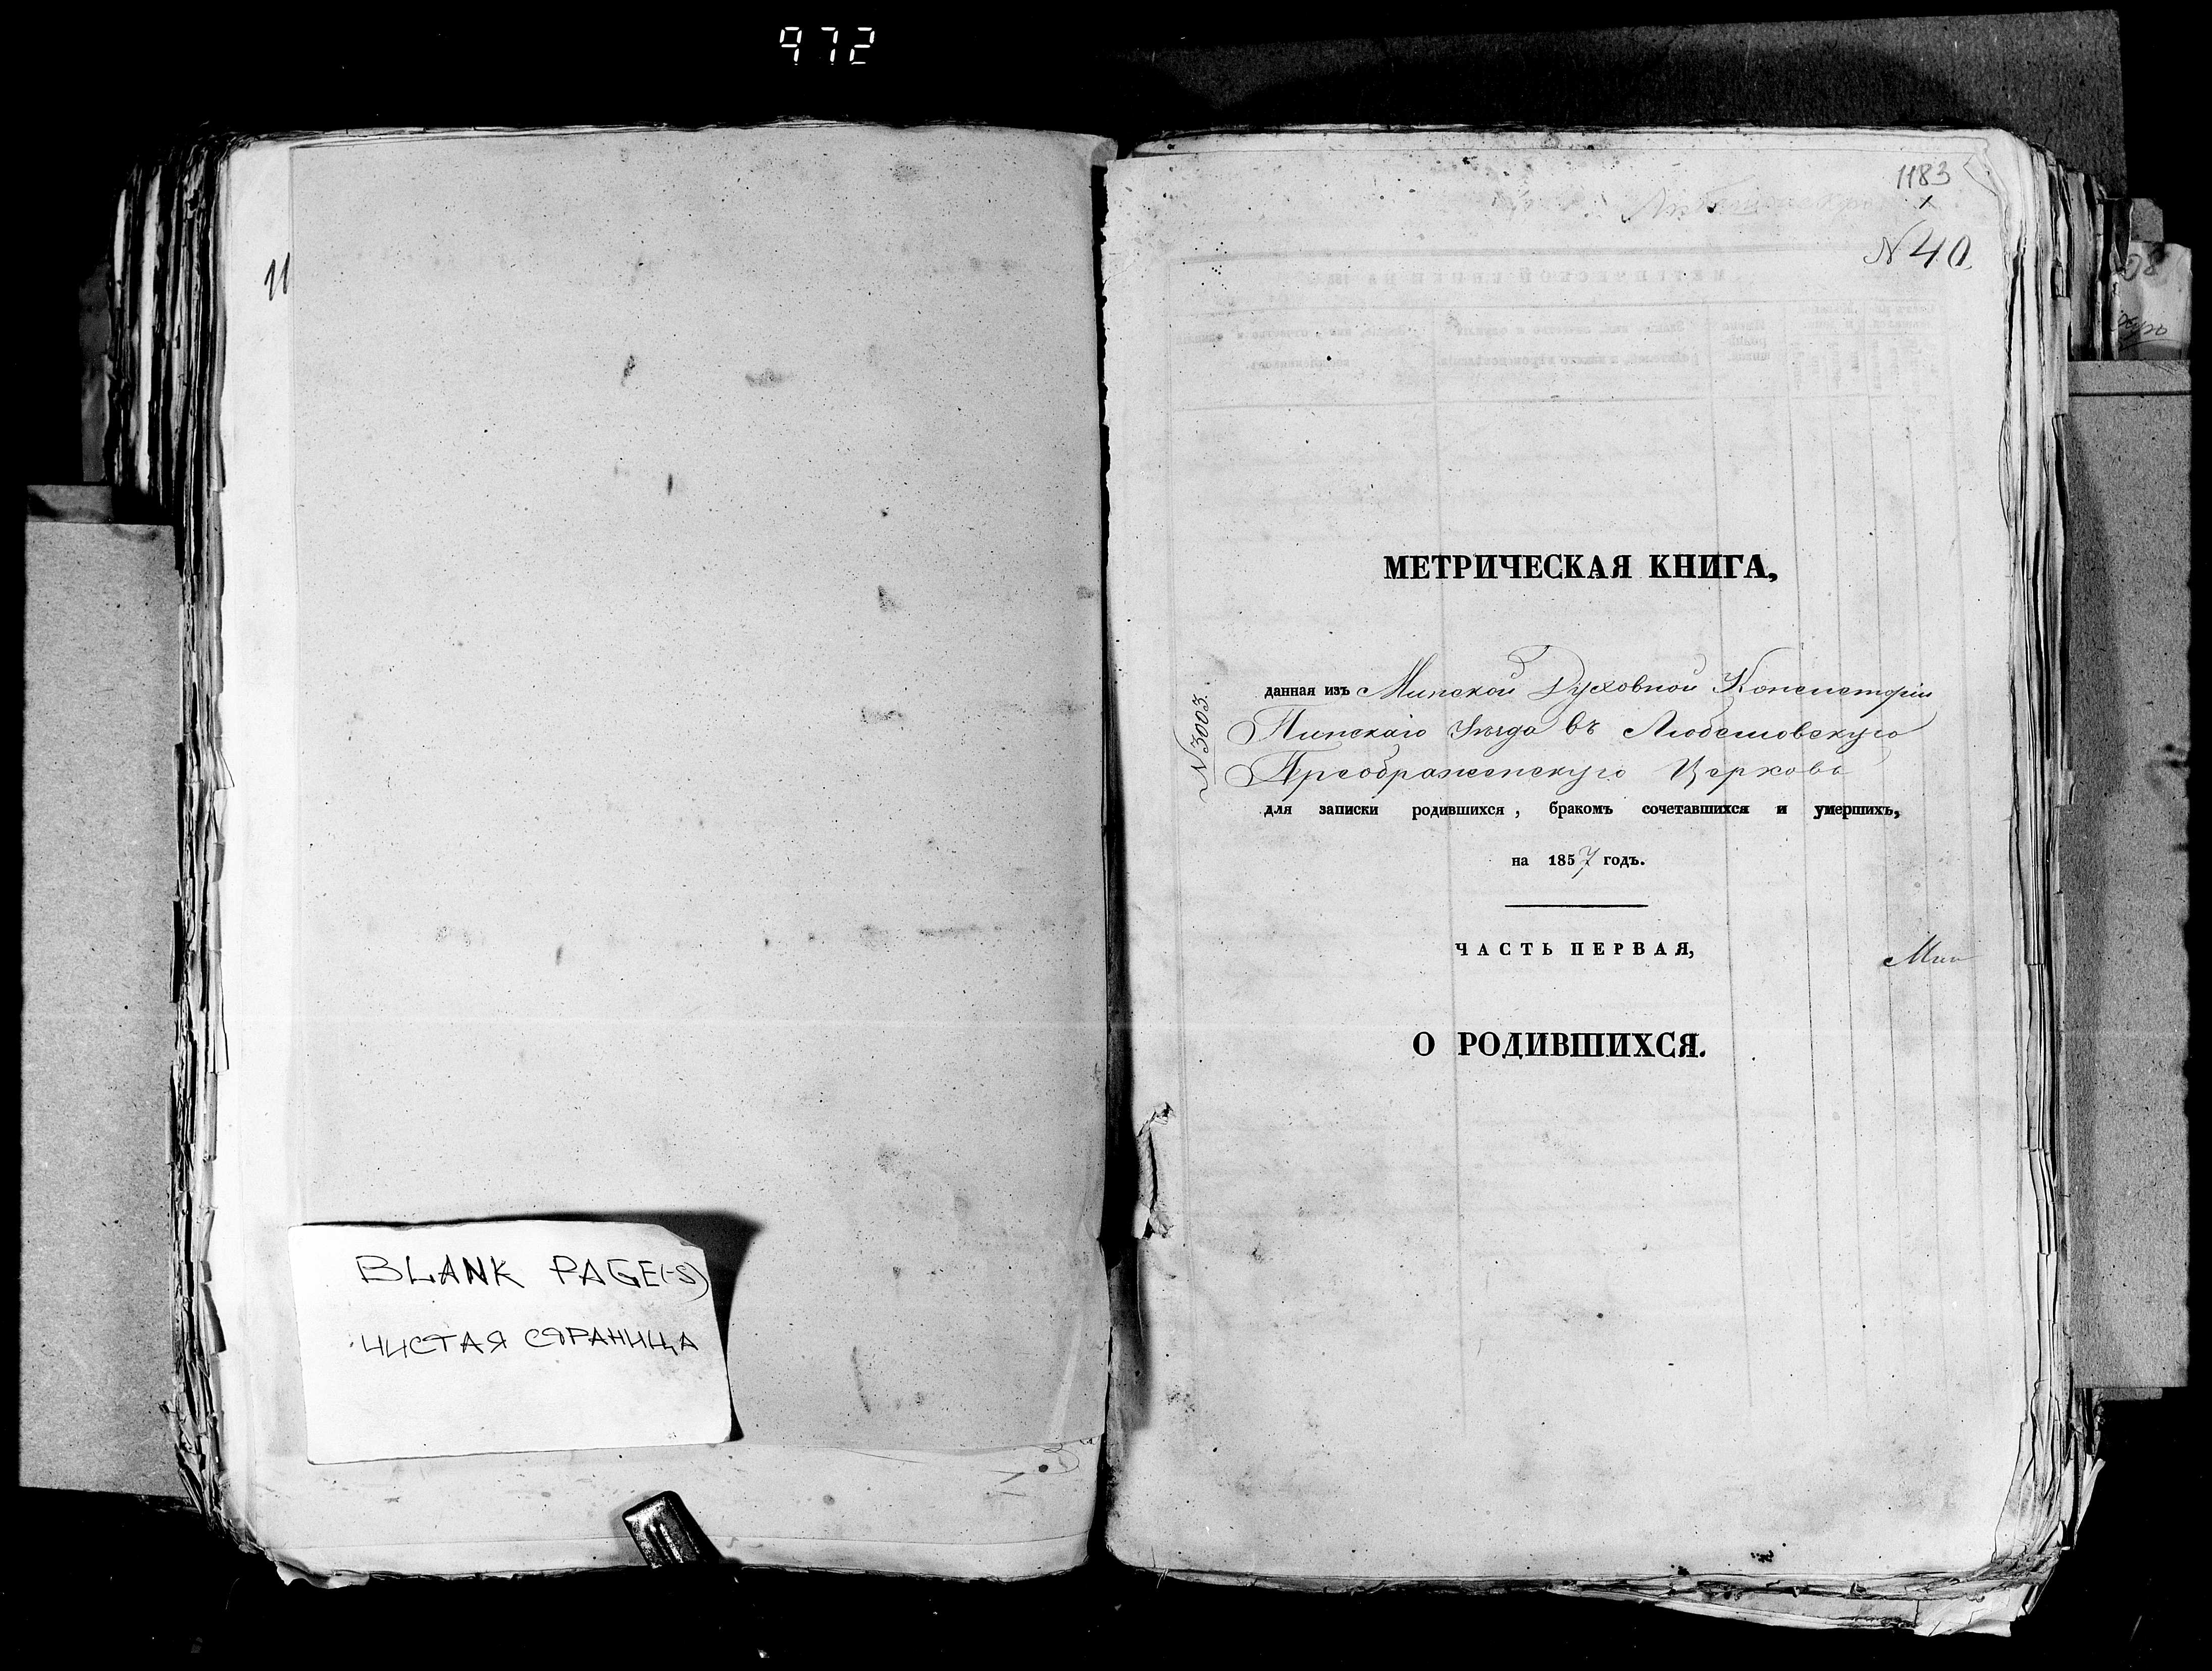 972
11
BLANK PAGE(-S)
ЧИСТАЯ СТРАНИЦА
1183
N 40.
МЕТРИЧЕСКАЯ КНИГА,
N 3003.
данная изъ Минской Духовной Консисторіи
Пинскаго Уѣзда въ Любешовскую
Преображенскую Церковь
для записки родившихся, бракомъ сочетавшихся и умершихъ,
на 1857 годъ.
ЧАСТЬ ПЕРВАЯ,
Мин
О РОДИВШИХСЯ.